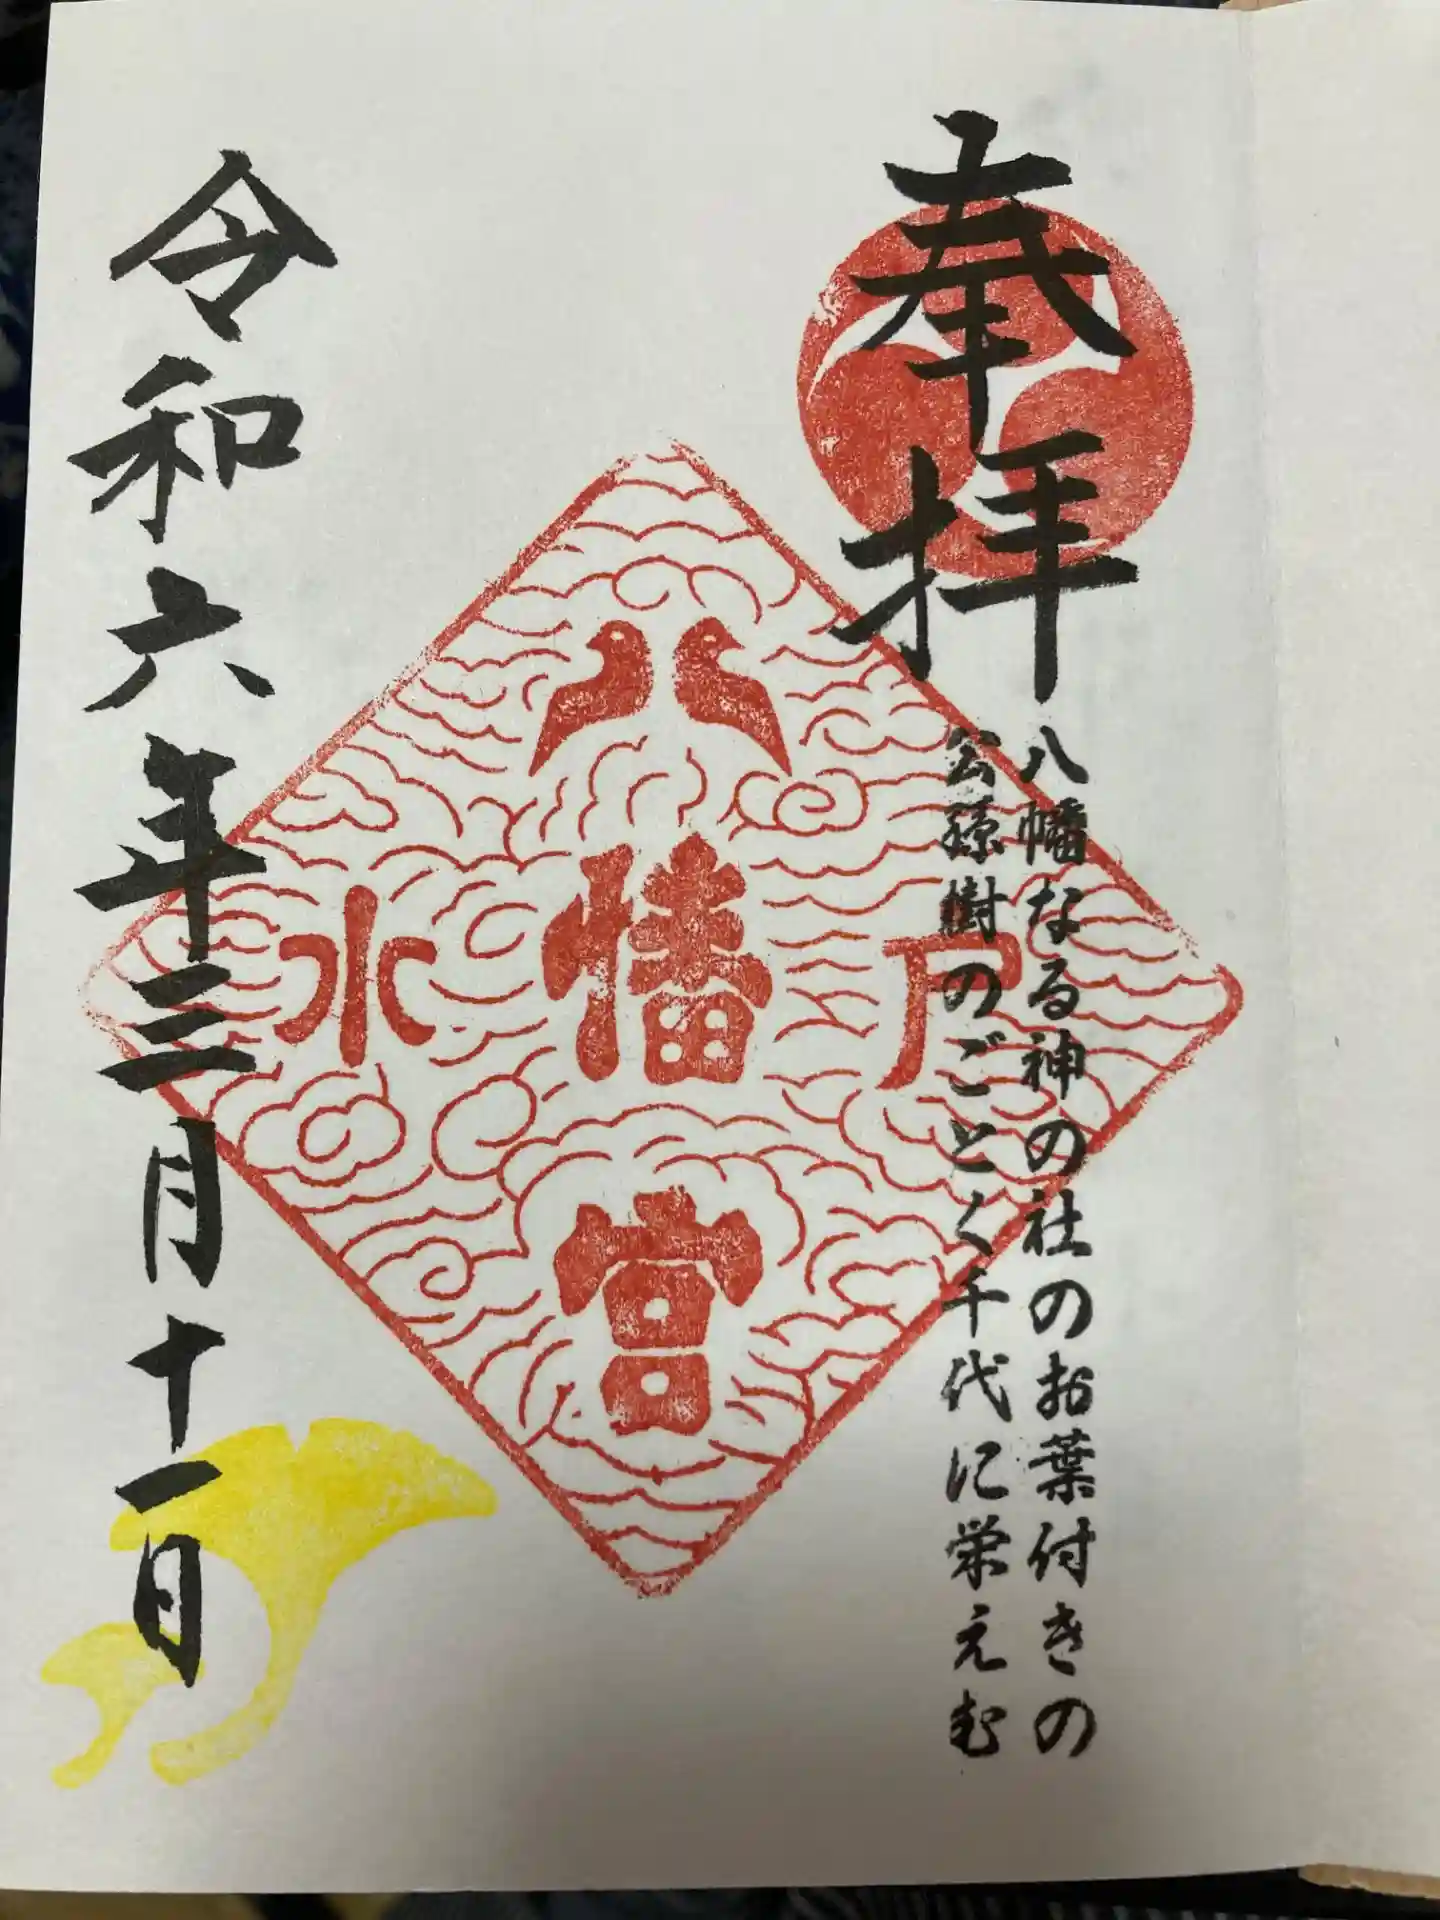 奉拝
八幡なる神の社のお葉付きの
公孫樹のごとく千代に栄えむ
水戸
八幡
宮
令和六年三月十一日